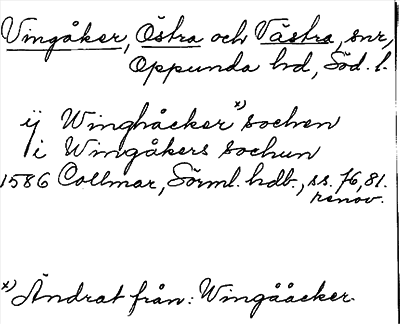 Vingåker, Östra och Västra, snr,
Oppunda hd, Söd. l.
ij Winghåcker*) sochen
i Wingåkers sochun
1586 Collmar, Sörml. hdl., ss. 76, 81.
renov.
*) Ändrat från: Wingååcker.